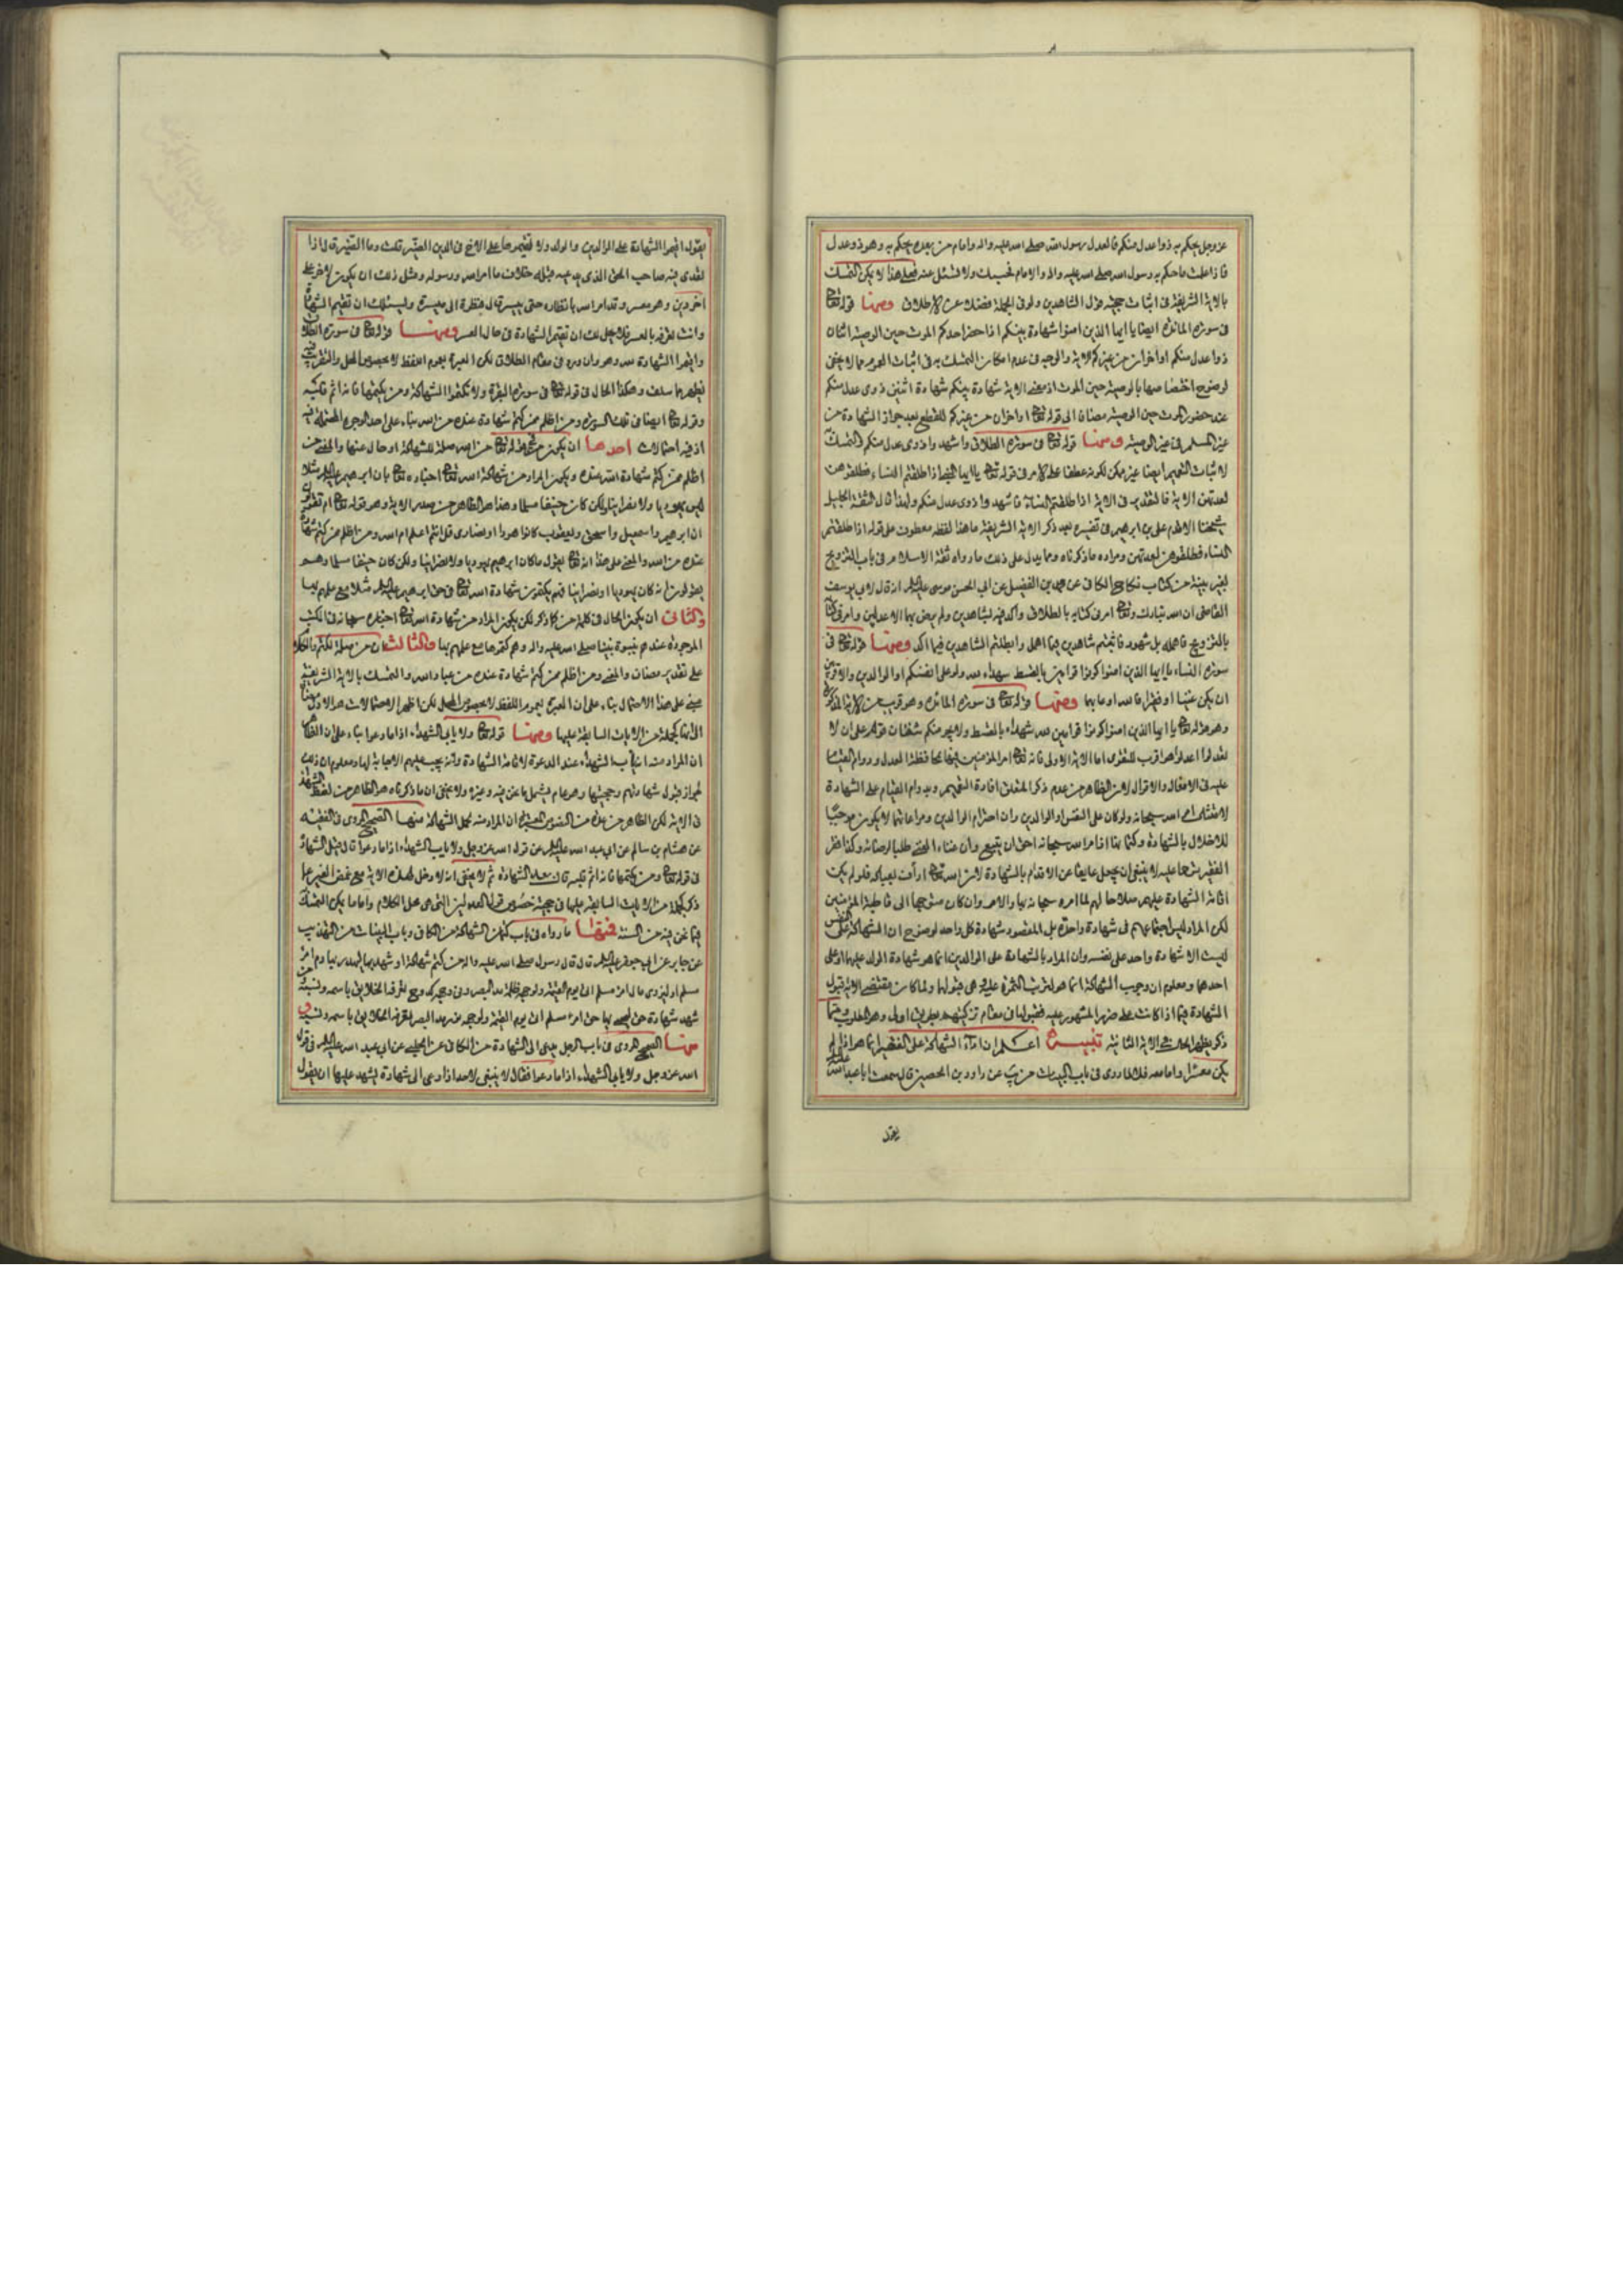 عز وجل يحكم به ذوا عدل منكم فالعدل رسول الله صلى الله عليه واله والامام من بعده يحكم به وهو ذو عدل
فاذا علمت ما حكم به رسول الله صلى الله عليه واله والامام فحسبك ولا تسئل عنه فعلى هذا لا يمكن التمسك
بالاية الشريفة فى اثبات حجية قول الشاهدين ولو فى الجملة فضلا عن الاطلاق ومنها قوله تعالى
فى سورة المائدة ايضا يا ايها الذين امنوا شهادة بينكم اذا حضر احدكم الموت حين الوصية اثنان
ذوا عدل منكم او اخران من غيركم الاية والوجه فى عدم امكان التمسك به فى اثبات العموم مما لا يخفى
لوضوح اختصاصها بالوصية حين الموت اذ معنى الاية شهادة بينكم شهادة اثنين ذوى عدل منكم
عند حضور الموت حين الوصية مضافا الى قوله تعالى او اخران من غيركم للقطع بعدم جواز الشهادة من
غير المسلم فى غير الوصية ومنها قوله تعالى فى سورة الطلاق واشهدوا ذوى عدل منكم والتمسك
لاثبات التعميم ايضا غير ممكن لكونه عطفا على الامر فى قوله تعالى يا ايها النبى اذا طلقتم النساء فطلقوهن
لعدتهن الاية فالتقدير فى الاية اذا طلقتم النساء فاشهدوا ذوى عدل منكم ولهذا قال الثقة الجليل
شيخنا الاقدم على بن ابرهيم فى تفسيره بعد ذكر الاية الشريفة ما هذا لفظه معطوف على قوله اذا طلقتم
النساء فطلقوهن لعدتهن ومراده ما ذكرناه ومما يدل على ذلك ما رواه ثقة الاسلام فى باب التزويج
بغير بينة من كتاب نكاح الكافى عن محمد بن الفضيل عن ابى الحسن موسى عليه السلم انه قال لابى يوسف
القاضى ان الله تبارك وتعالى امر فى كتابه بالطلاق واكد فيه بشاهدين ولم يرض بهما الا عدلين وامر فى كتابه
بالتزويج فاهمله بلا شهود فاثبتم شاهدين فيما اهمل وابطلتم الشاهدين فيما اكد ومنها قوله تعالى فى
سورة النساء يا ايها الذين امنوا كونوا قوامين بالقسط شهداء لله ولو على انفسكم او الوالدين والاقربين
ان يكن غنيا او فقيرا فالله اولى بهما ومنها قوله تعالى فى سورة المائدة وهو قريب من الاية المذكورة
وهو قوله تعالى يا ايها الذين امنوا كونوا قوامين لله شهداء بالقسط ولا يجرمنكم شنئان قوم على ان لا
تعدلوا اعدلوا هو اقرب للتقوى اما الاية الاولى فانه تعالى امر المؤمنين فيها بمحافظة العدل ودوام القيام
عليه فى الافعال والاقوال لان الظاهر من عدم ذكر المتعلق افادة التعميم وبدوام القيام على الشهادة
لاقتضاء امر الله سبحانه ولو كان على النفس او الوالدين وان احترام الوالدين ومراعاتهما لا يكون موجبا
للاخلال بالشهادة وكتمانها اذ امر الله سبحانه احق ان يتبع وان غناء الغنى طلبا لرضائه وكذا فقر
الفقير ترحما عليه لا ينبغى ان يجعل عايقا عن الاقدام بالشهادة لان الله تعالى ارأف لعباده فلو لم يكن
اقامة الشهادة عليهم صلاحا لهم لما امره سبحانه بها والامر وان كان متوجها الى قاطبة المؤمنين
لكن المراد ليس اجتماعهم فى شهادة واحدة بل المقصود شهادة كل واحد لوضوح ان الشهادة على النفس
ليست الا شهادة واحد على نفسه وان المراد بالشهادة على الوالدين انما هو شهادة الولد عليهما او على
احدهما ومعلوم ان وجوب الشهادة انما هو لترتب الثمرة عليه وهى قبولها ولما كان مقتضى الاية قبول
الشهادة فيما اذا كانت على ضرر المشهور عليه فقبولها فى مقام تزكيته بطريق اولى وهو المطلوب ومما
ذكر يظهر الحال فى الاية الثانية تنبيه اعلم ان اداء الشهادة على الفقير انما هو اذا لم
يكن معسرا واما معه فلا لما روى فى باب البينات من يب عن داود بن الحصين قال سمعت ابا عبد الله عليه السلم
يقول
يقول اقيموا الشهادة على الوالدين والولد ولا تقيموها على الاخ فى الدين الضير قلت وما الضير قال اذا
تعدى فيه صاحب الحق الذى يدعيه قبله خلاف ما امر الله ورسوله ومثل ذلك ان يكون لاخر على
اخر دين وهو معسر وقد امر الله بانظاره حتى ييسر قال فنظرة الى ميسرة ويسئلك ان تقيم الشهادة
وانت تعرفه بالعسر فلا يحل لك ان تقيم الشهادة فى حال العسر ومنها قوله تعالى فى سورة الطلاق
واقيموا الشهادة لله وهو وان ورد فى مقام الطلاق لكن العبرة بعموم اللفظ لا بخصوص المحل والتقريب فيه
يظهر مما سلف وهكذا الحال فى قوله تعالى فى سورة البقرة ولا تكتموا الشهادة ومن يكتمها فانه اثم قلبه
وقوله تعالى ايضا فى تلك السورة ومن اظلم ممن كتم شهادة عنده من الله بناء على احد الوجوه المحتملة فيه
اذ فيه احتمالات احدها ان يكون قوله تعالى من الله صلة للشهادة او حال عنها والمعنى من
اظلم ممن كتم شهادة الله عنده ويكون المراد من شهادة الله تعالى اخباره تعالى بان ابرهيم عليه السلم مثلا
ليس يهوديا ولا نصرانيا ولكن كان حنيفا مسلما وهذا هو الظاهر من صدر الاية وهو قوله تعالى ام تقولون
ان ابرهيم واسمعيل واسحق ويعقوب كانوا هودا او نصارى قل ءانتم اعلم ام الله ومن اظلم ممن كتم شهادة
عنده من الله والمعنى على هذا انه تعالى يقول ما كان ابرهيم يهوديا ولا نصرانيا ولكن كان حنيفا مسلما وهم
يقولون انه كان يهوديا او نصرانيا فهم يكتمون شهادة الله تعالى فى حق ابرهيم عليه السلم مثلا مع علمهم بها
والثانى ان يكون الحال فى كلمة من كما ذكر لكن يكون المراد من شهادة الله تعالى اخباره سبحانه فى الكتب
الموجودة عندهم بنبوة نبينا صلى الله عليه واله وهم كتموها مع علمهم بها والثالث ان من صلة لكتم والكلام
على تقدير مضاف والمعنى ومن اظلم ممن كتم شهادة عنده من عباد الله والتمسك بالاية الشريفة
مبنى على هذا الاحتمال بناء على ان العبرة بعموم اللفظ لا بخصوص المحل لكن اظهر الاحتمالات هو الاول ومنها
قوله تعالى ولا ياب الشهداء اذا ما دعوا بناء على ان الظاهر
ان المراد منه ان لا ياب الشهداء عند الدعوة لاقامة الشهادة وانه يجب عليهم الاجابة لها ومعلوم ان ذلك
لجواز قبول شهادتهم وحجيتها وهو عام يشمل ما نحن فيه وغيره ولا يخفى ان ما ذكرناه هو الظاهر من لفظ الشهداء
فى الاية لكن الظاهر من جملة من النصوص المعتبرة ان المراد منه تحمل الشهادة منها الصحيح المروى فى الفقيه
عن هشام بن سالم عن ابى عبد الله عليه السلم عن قول الله عز وجل ولا ياب الشهداء اذا ما دعوا قال قبل الشهادة
فى قوله تعالى ومن يكتمها فانه اثم قلبه قال بعد الشهادة ثم لا يخفى انه لا دخل لهذه الاية مع غمض العين عما
ذكر كجملة من الايات السابقة عليها فى حجية خصوص قول العدلين التى هى محل الكلام واما ما يمكن التمسك
فيما نحن فيه من السنة فمنها ما رواه فى باب كتمان الشهادة من الكافى وباب البينات من التهذيب
عن جابر عن ابى جعفر عليه السلم قال قال رسول الله صلى الله عليه واله من كتم شهادة او شهد بها ليهدر بها دم امرء
مسلم او ليزوى مال امرء مسلم اتى يوم القيمة ولوجهه ظلمة مد البصر وفى وجهه كدوح تعرفه الخلايق باسمه ونسبه ومن
شهد شهادة حق ليحيى بها حق امرء مسلم اتى يوم القيمة ولوجهه نور مد البصر تعرفه الخلايق باسمه ونسبه و
منها الصحيح المروى فى باب الرجل يدعى الى الشهادة من الكافى عن الحلبى عن ابى عبد الله عليه السلم فى قول
الله عز وجل ولا ياب الشهداء اذا ما دعوا فقال لا ينبغى لاحد اذا دعى الى شهادة يشهد عليها ان يقول